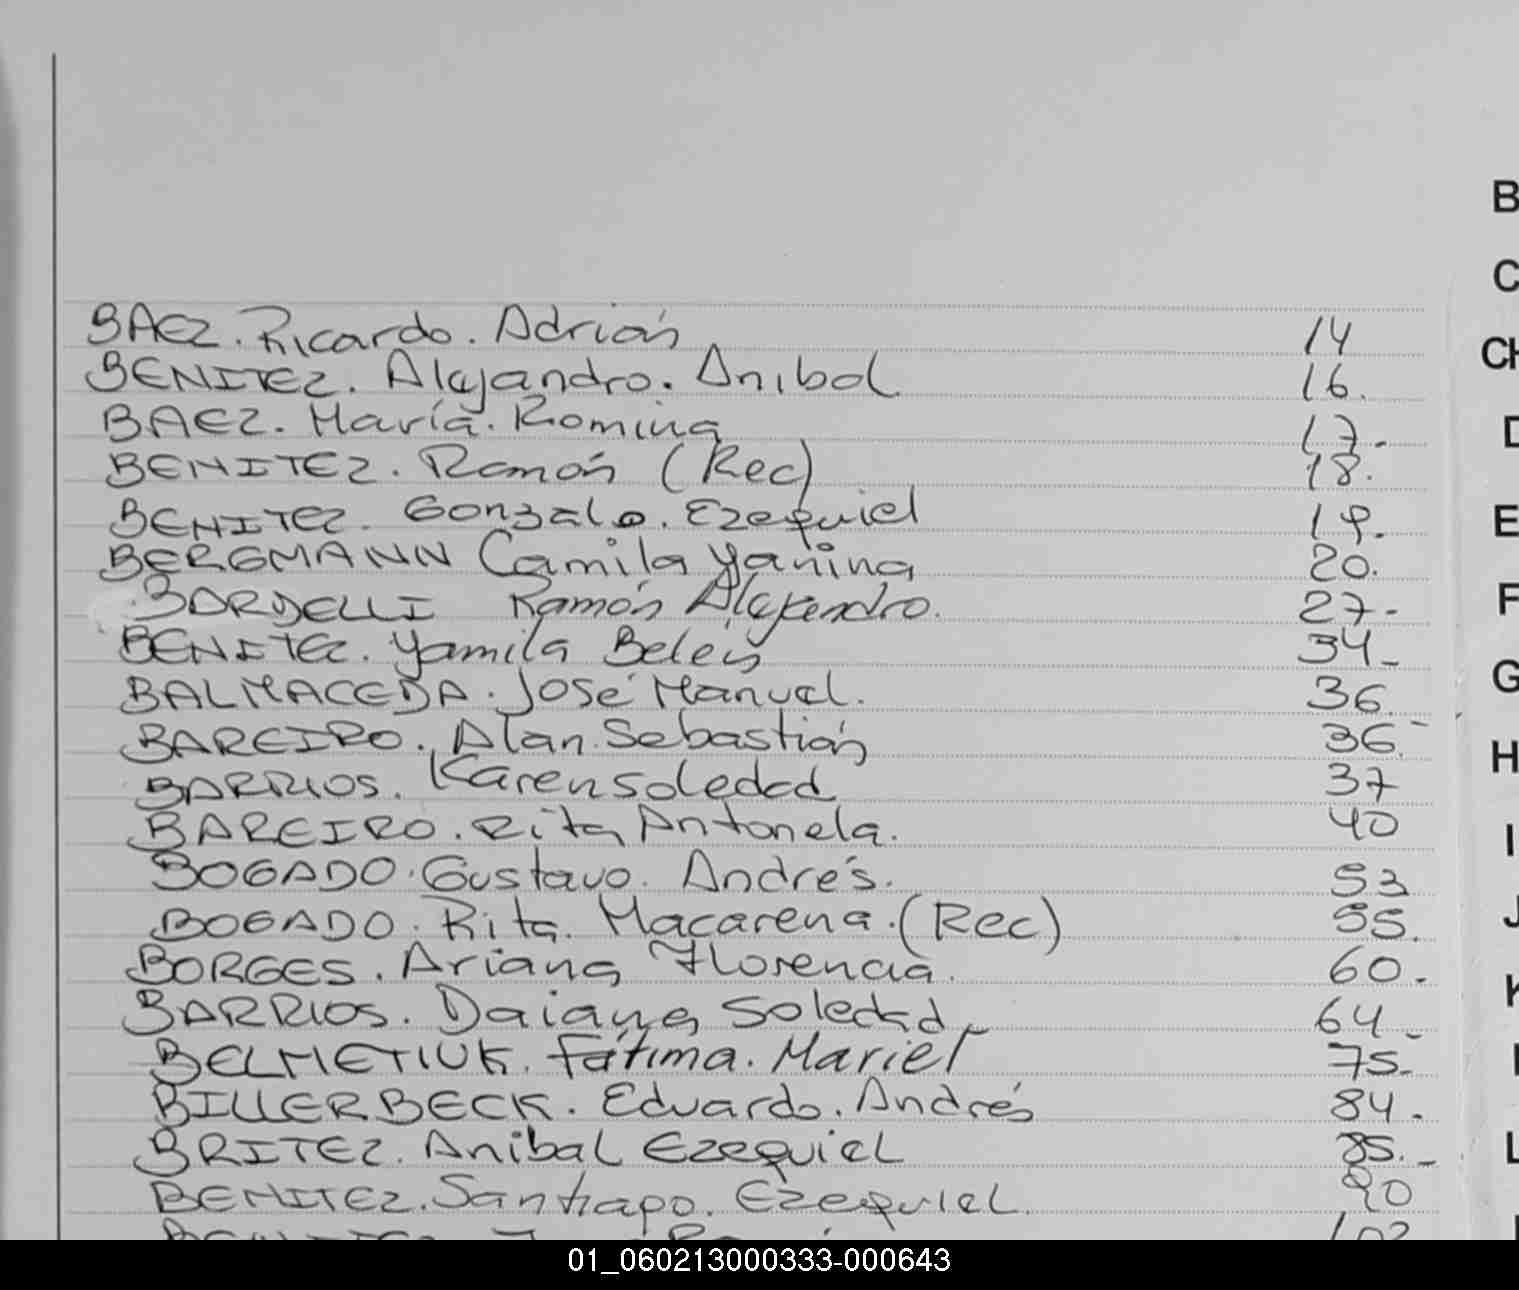 BAEZ. Ricardo. Adrián 14
BENITEZ. Alejandro. Anibal 16.
BAEZ. María. Romina 17.-
BENITEZ. Ramón (Rec) 18.
BENITEZ. Gonzalo. Ezequiel 19.
BERGMANN Camila Yanina 20.
BORDELLI Ramón Alejandro. 27.-
BENITEZ. Yamila Belén 34_
BALMACEDA. José Manuel. 36.
BAREIRO. Alan. Sebastián 36.-
BARRIOS. Karen Soledad 37
BAREIRO. Rita Antonela. 40
BOGADO. Gustavo. Andrés. 53
BOGADO. Rita. Macarena. (Rec) 55.
BORGES. Ariana Florencia. 60.
BARRIOS. Daiana Soledad_ 64_
BELMETIUK. Fátima. Mariel 75.
BILLERBECK. Eduardo. Andrés 84.
BRITEZ. Anibal Ezequiel 85._
BENITEZ. Santiago. Ezequiel. 90
B
C
CH
D
E
F
G
H
I
J
K
L
01_060213000333-000643